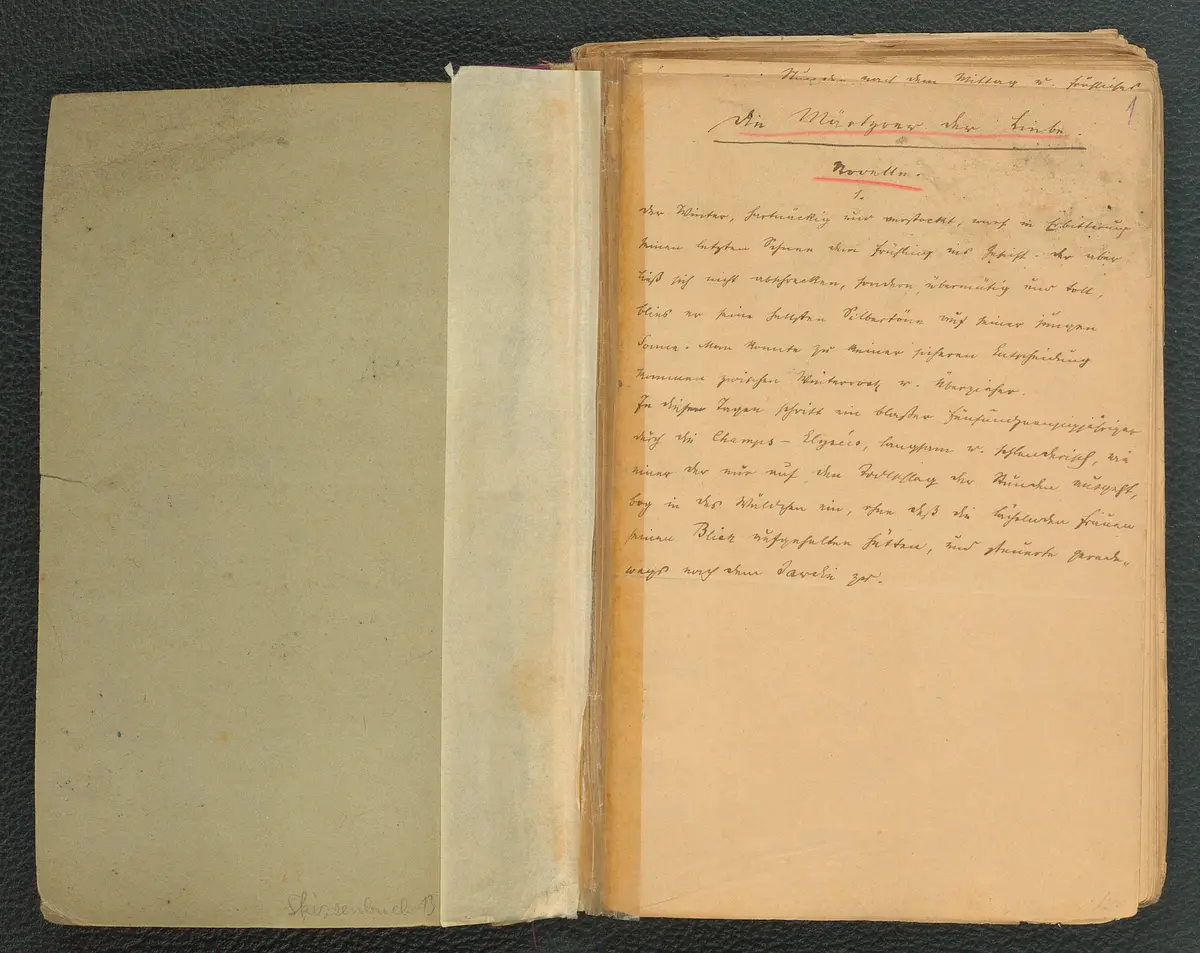 Stunden nach dem Mittag u. fröhliches
1
Die Märtyrer der Liebe.
Novelle.
1.
Der Winter, hartnäckig und verstockt, warf in Erbitterung
seinen letzten Schnee dem Frühling ins Gesicht. Der aber
ließ sich nicht abschrecken, sondern, übermütig und toll,
blies er seine hellsten Silbertöne auf seiner jungen
Sonne. Man konnte zu keiner sicheren Entscheidung
kommen zwischen Winterrock u. Überzieher.
In diesen Tagen schritt ein blasser Fünfundzwanzigjähriger
durch die Champs-Elysées, langsam u. schlenderisch, wie
einer der nur auf den Todschlag der Stunden ausgeht,
bog in das Wäldchen ein, ohne daß die lächelnden Frauen
seinen Blick aufgehalten hätten, und steuerte gerade-
wegs nach dem Jardin zu.
Skizzenbuch 13